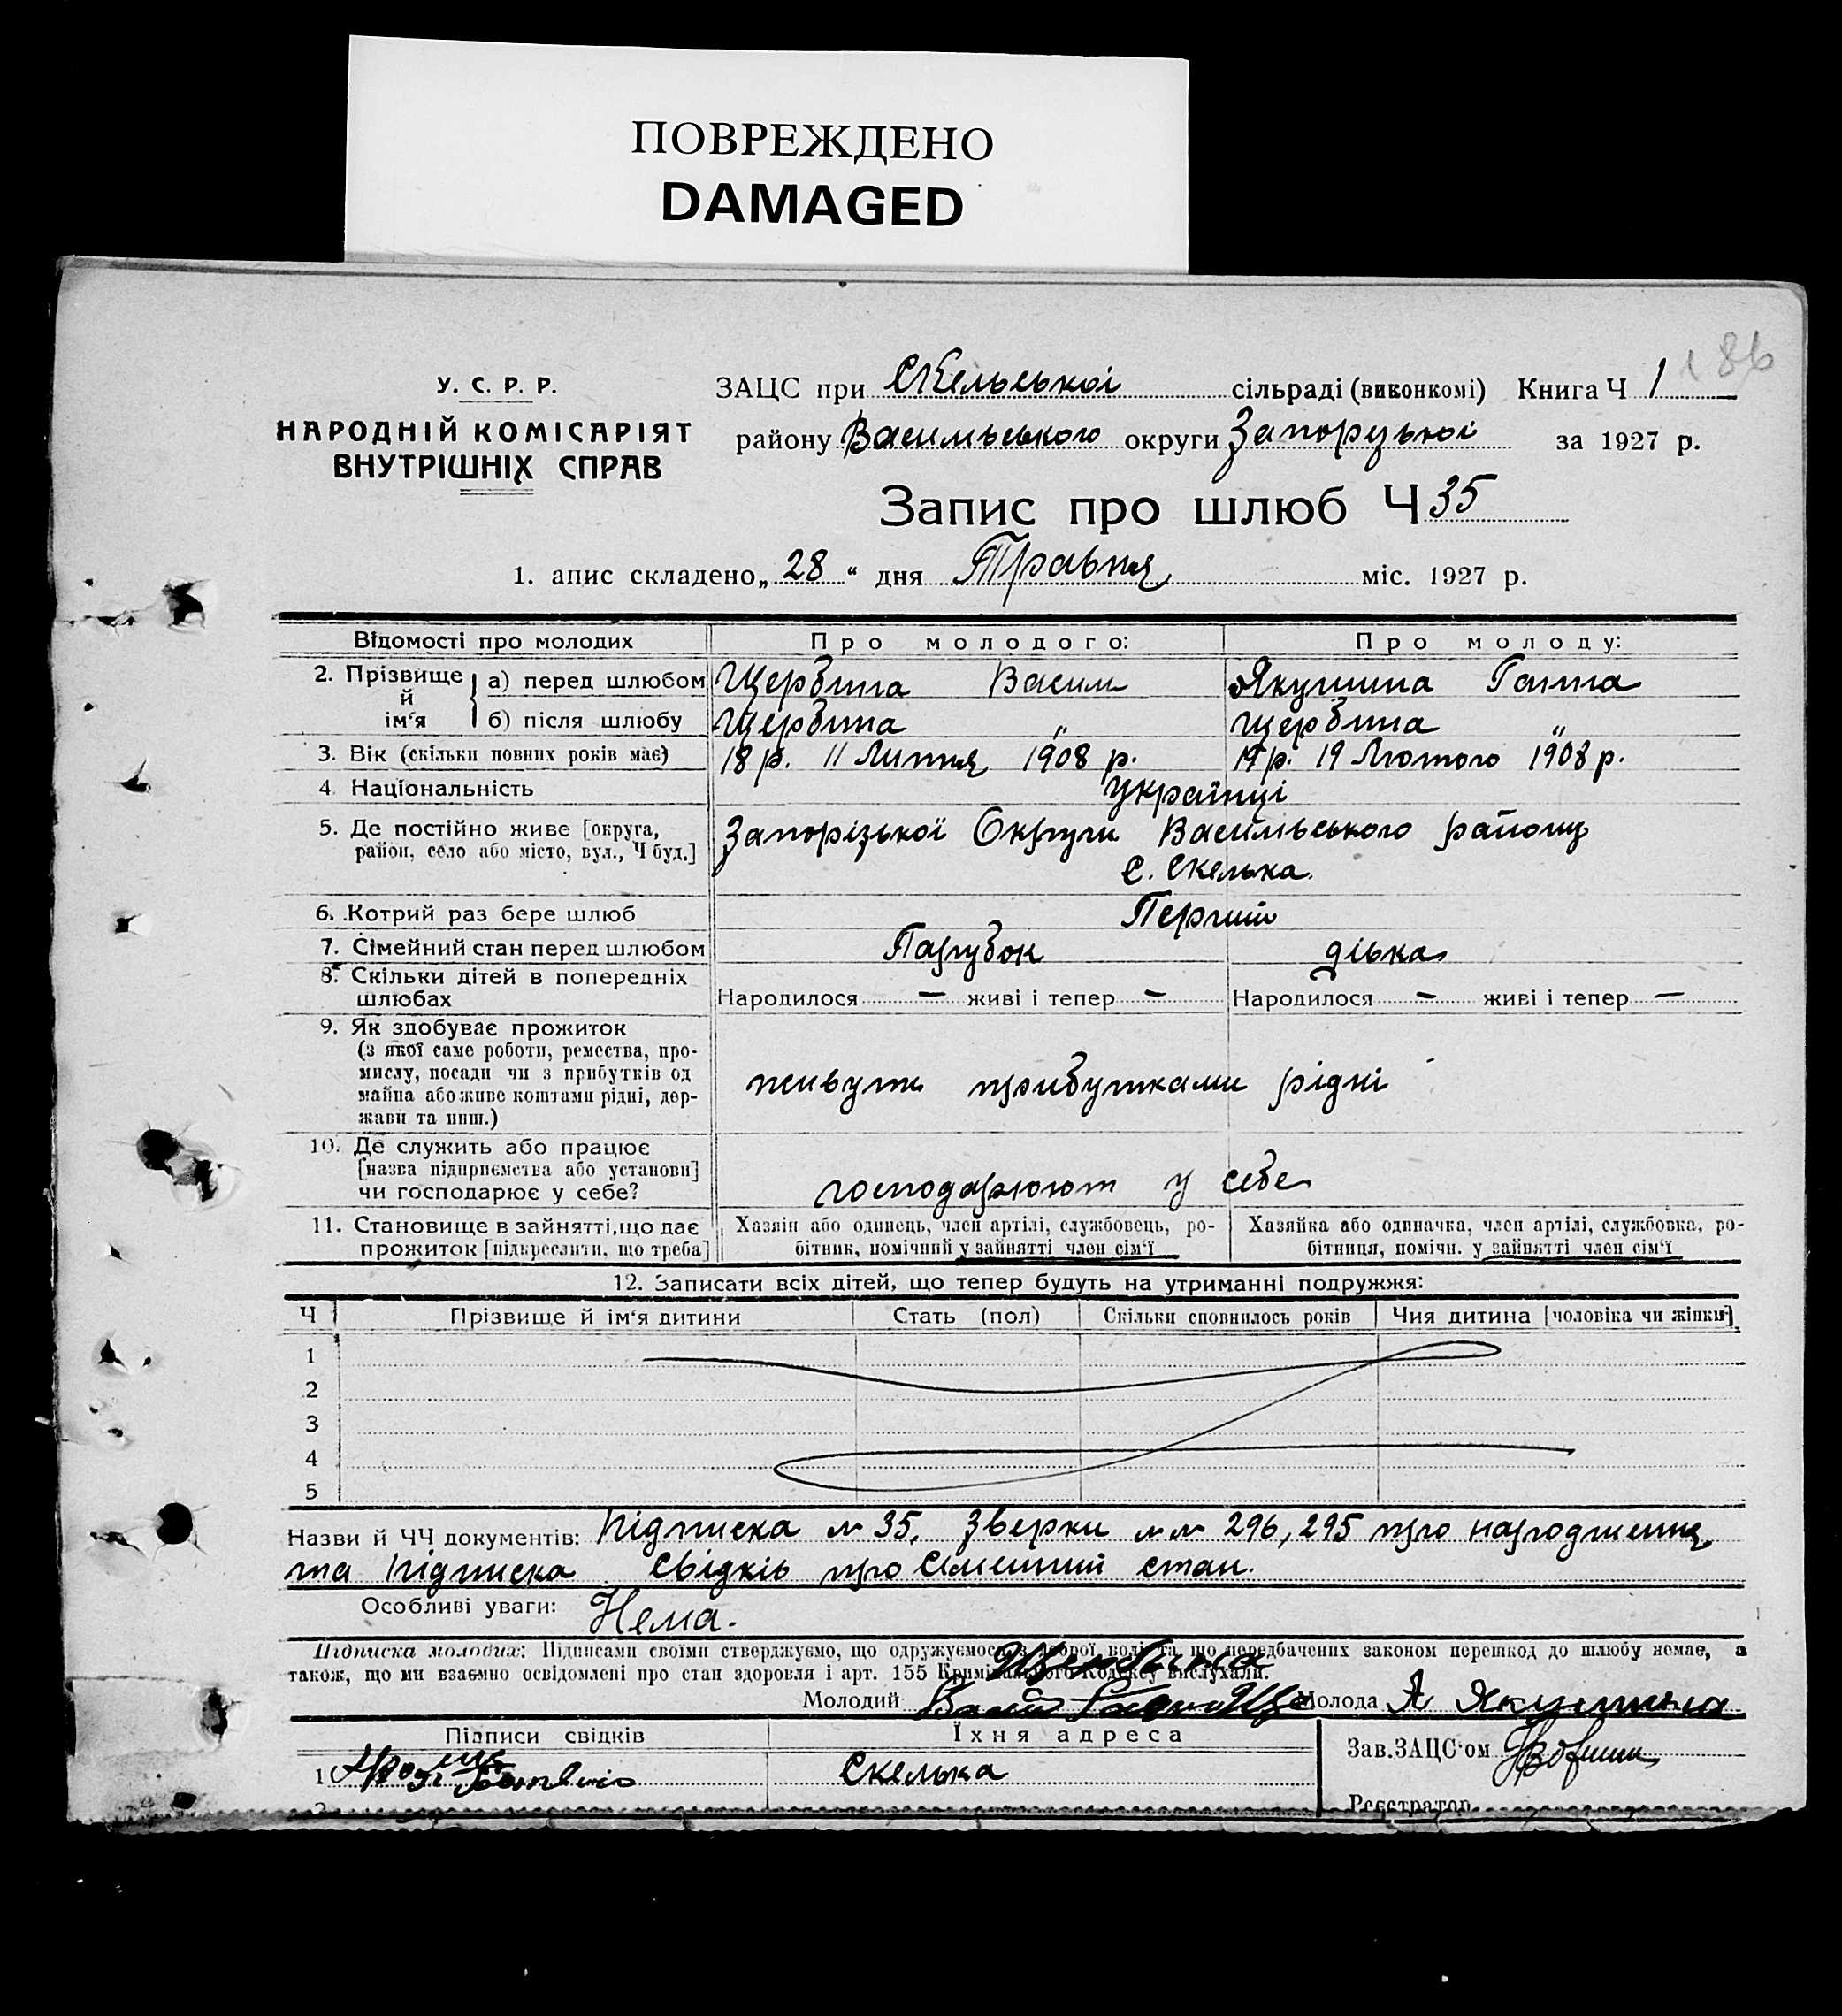 ПОВРЕЖДЕНО
DAMAGED
186
У. С. Р. Р.
НАРОДНІЙ КОМІСАРІЯТ
ВНУТРІШНІХ СПРАВ
ЗАЦС при Скельської сільраді (виконкомі) Книга Ч 1
району Васильського округи Запорузької за 1927 р.
Запис про шлюб Ч 35
1. апис складено „ 28 “ дня Травня міс. 1927 р.
Відомості про молодих Про молодого: Про молоду:
2. Прізвище й ім‘я а) перед шлюбом Щербина Васил Якушина Ганна
б) після шлюбу Щербина " Щербина "
3. Вік (скільки повних років має) 18 р. 11 Липня 1908 р. 19 р. 19 Лютого 1908 р.
4. Національність українці
5. Де постійно живе [округа, Запорізької Округи Васильського району
район, село або місто, вул., Ч буд.] С. Скелька.
6. Котрий раз бере шлюб Перший
7. Сімейний стан перед шлюбом Парубок дівка
8. Скільки дітей в попередніх
шлюбах Народилося – живі і тепер – Народилося – живі і тепер –
9. Як здобуває прожиток
(з якої саме роботи, ремества, про-
мислу, посади чи з прибутків од
майна або живе коштами рідні, дер-
жави та инш.)
живуть прибутками рідні
10. Де служить або працює
[назва підприємства або установи]
чи господарює у себе? господарюют у себе
11. Становище в зайнятті, що дає Хазяін або одинець, член артілі, службовець, ро- Хазяйка або одиначка, член артілі, службовка, ро-
прожиток [підкреслити, що треба] бітник, помічний у зайнятті член сім‘ї бітниця, помічн. у зайнятті член сім‘ї
12. Записати всіх дітей, що тепер будуть на утриманні подружжя:
Ч Прізвище й ім‘я дитини Стать (пол) Скільки сповнилось років Чия дитина [чоловіка чи жінки]
1
2
3
4
5
Назви й ЧЧ документів: Підписка № 35, Зверки №№ 296, 295 про народження
та підписка свідків про сімейний стан.
Особливі уваги: Нема.
Підписка молодих: Підписами своїми стверджуємо, що одружуємось з доброї волі та що передбачених законом перешкод до шлюбу немає, а
також, що ми взаємно освідомлені про стан здоровля і арт. 155 Кримінального Кодексу вислухали.
Щербина
Молодий Молода А Якушина
Підписи свідків Їхня адреса Зав. ЗАЦС‘ом
1 Скелька
2 Реєстратор